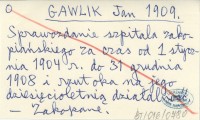 GAWLIK Jan 1909.
Sprawozdanie szpitala zako-
piańskiego za czas od 1 stycz-
nia 1904 r. do 31 grudnia
1908 i rzut oka na jego
dziesięcioletnią działaln.
— Zakopane.